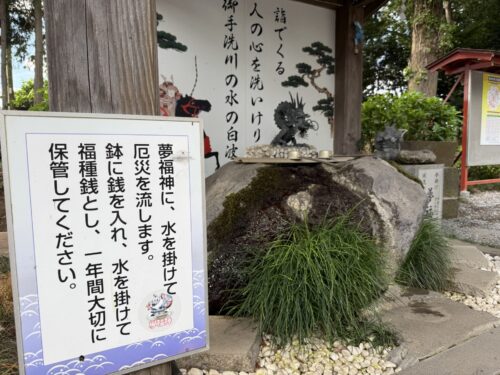 夢福神に、水を掛けて
厄災を流します。
鉢に銭を入れ、水を掛けて
福種銭とし、一年間大切に
保管してください。
詣でくる
人の心を洗いけり
御手洗川の水の白波